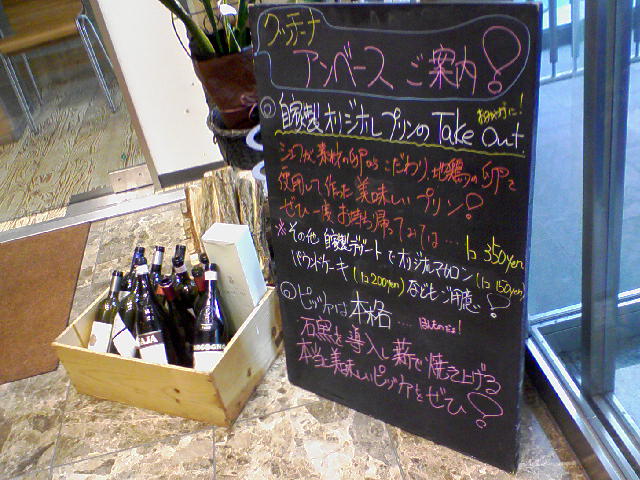 クッチーナ
アンベース ご案内!
自家製オリジナルプリンの Take Out
おみやげに!
シェフが素材の卵からこだわり、地鶏の卵を
使用して作った美味しいプリン!
ぜひ一度お持ち帰ってみては… 1コ 350yen
※その他 自家製デザートでオリジナルマカロン (1コ 150yen)
パウンドケーキ (1コ 200yen) などもご用意!
ピッツァは本格....
石窯を導入し薪で焼き上げる
本当美味しいピッツァをぜひ!
GAJA
BORGOGNO